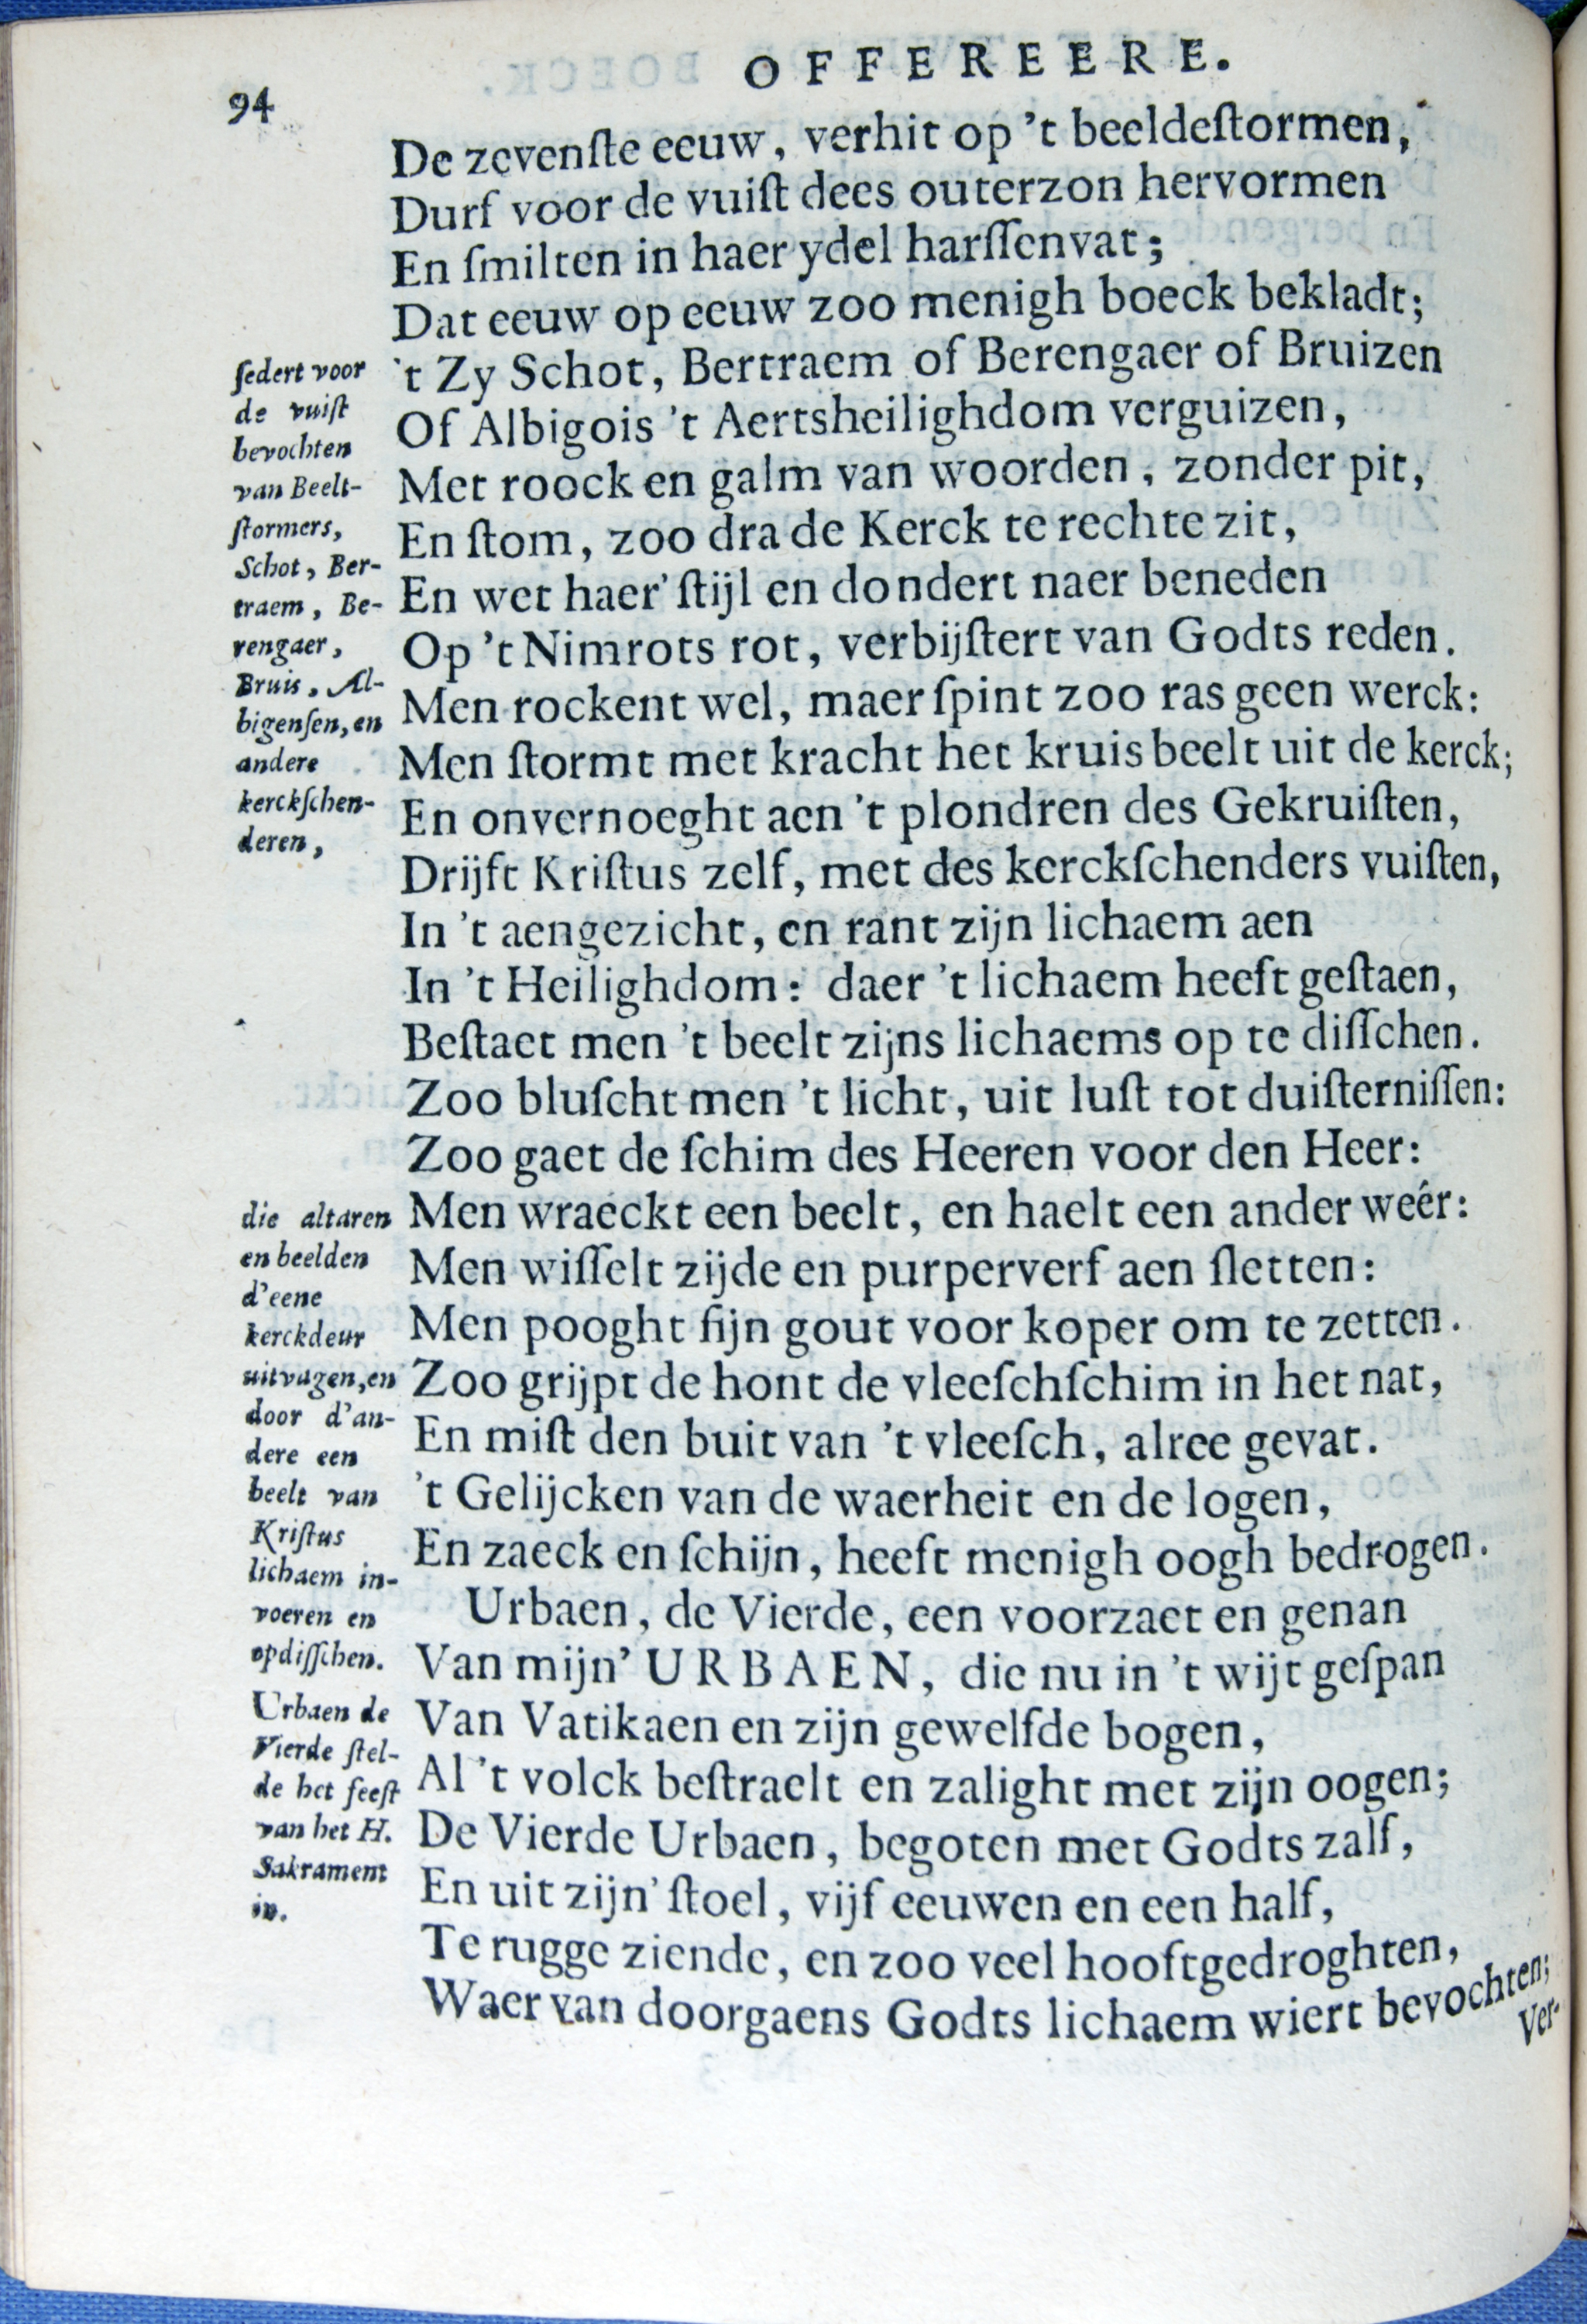 OFFEREERE.
94
De zevenſte eeuw, verhit op 't beeldeſtormen,
Durf voor de vuiſt dees outerzon hervormen
En ſmilten in haer ydel harſſenvat;
Dat eeuw op eeuw zoo menigh boeck bekladt;
't Zy Schot, Bertraem of Berengaer of Bruizen
Of Albigois 't Aertsheilighdom verguizen,
Met roock en galm van woorden, zonder pit,
En ſtom, zoo dra de Kerck te rechte zit,
En wet haer' ſtijl en dondert naer beneden
Op 't Nimrots rot, verbijſtert van Godts reden.
Men rockent wel, maer ſpint zoo ras geen werck:
Men ſtormt met kracht het kruisbeelt uit de kerck;
En onvernoeght aen 't plondren des Gekruiſten,
Drijft Kriſtus zelf, met des kerckſchenders vuiſten,
In 't aengezicht, en rant zijn lichaem aen
In 't Heilighdom: daer 't lichaem heeft geſtaen,
Beſtaet men 't beelt zijns lichaems op te diſſchen.
Zoo bluſcht men 't licht, uit luſt tot duiſterniſſen:
Zoo gaet de ſchim des Heeren voor den Heer:
Men wraeckt een beelt, en haelt een ander weér:
Men wiſſelt zijde en purperverf aen ſletten:
Men pooght fijn gout voor koper om te zetten.
Zoo grijpt de hont de vleeſchſchim in het nat,
En miſt den buit van 't vleeſch, alree gevat.
't Gelijcken van de waerheit en de logen,
En zaeck en ſchijn, heeft menigh oogh bedrogen.
Urbaen, de Vierde, een voorzaet en genan
Van mijn' URBAEN, die nu in 't wijt geſpan
Van Vatikaen en zijn gewelfde bogen,
Al 't volck beſtraelt en zalight met zijn oogen;
De Vierde Urbaen, begoten met Godts zalf,
En uit zijn' ſtoel, vijf eeuwen en een half,
Te rugge ziende, en zoo veel hooftgedroghten,
Waer van doorgaens Godts lichaem wiert bevochten;
Ver-
ſedert voor
de vuiſt
bevochten
van Beelt-
ſtormers,
Schot, Ber-
traem, Be-
rengaer,
Bruis, Al-
bigenſen, en
andere
kerckſchen-
deren,
die altaren
en beelden
d'eene
kerckdeur
uitvagen, en
door d'an-
dere een
beelt van
Kriſtus
lichaem in-
voeren en
opdiſſchen.
Urbaen de
Vierde ſtel-
de het feeſt
van het H.
Sakrament
in.